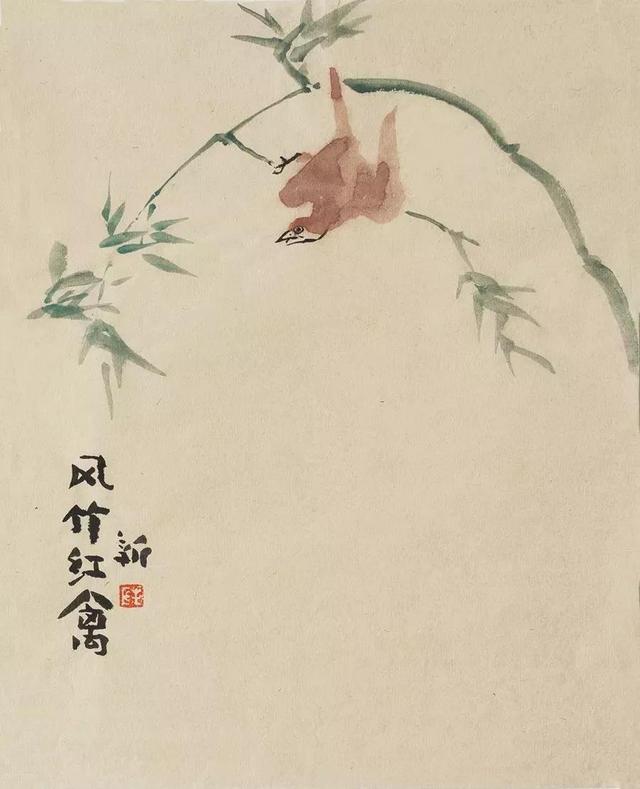 风竹红禽
新